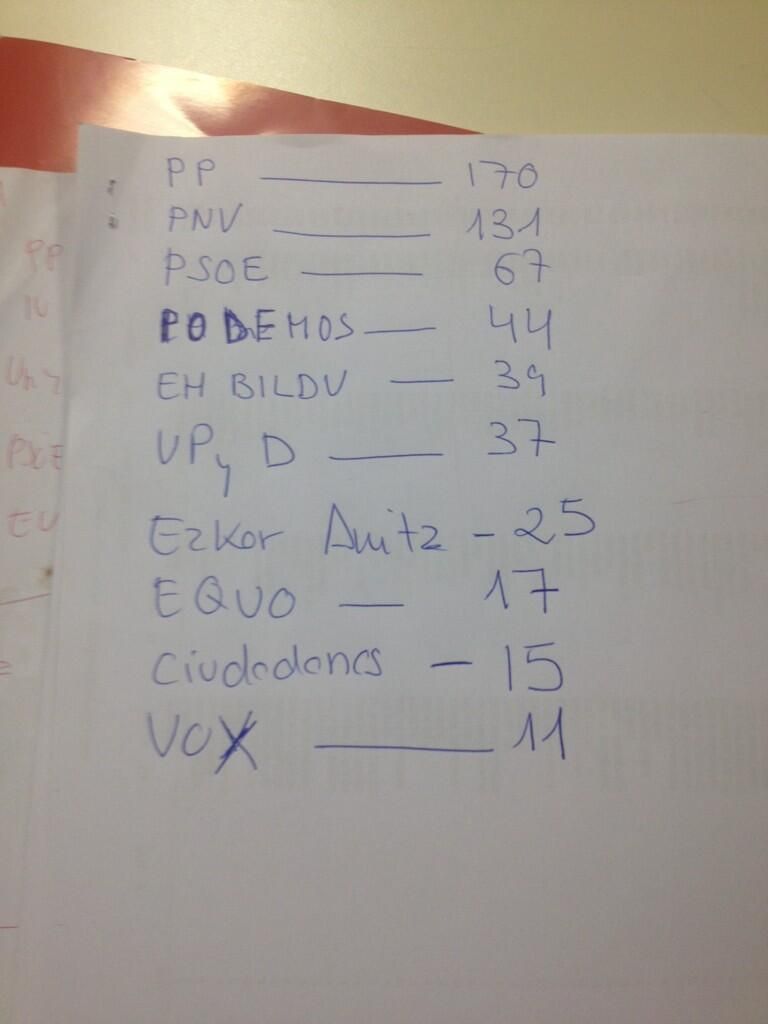 PP — 170
PNV — 131
PSOE — 67
PODEMOS — 44
EH BILDU — 39
UPyD — 37
Ezker Anitz - 25
EQUO — 17
Ciudadanos - 15
VOX — 11
PP
IU
EU